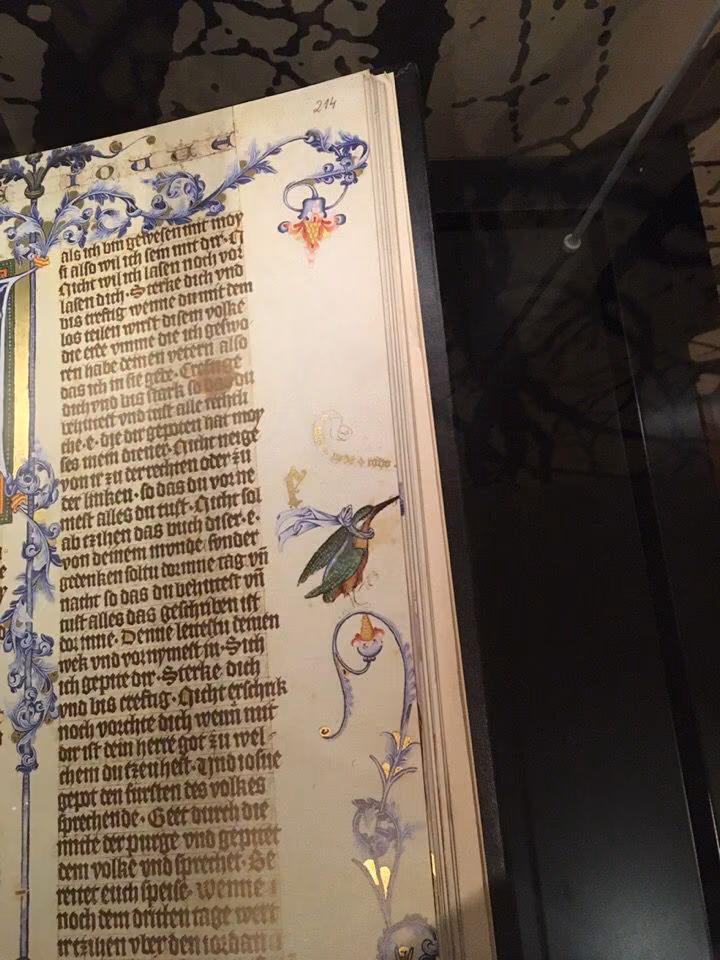 214
als ich bin gewesen mit moy
si also wil ich sein mit dir·
Nicht wil ich lasen noch vor
lasen dich· Sterke dich vnd
bis creftig wenne du mit dem
los teilen wirst disem volke
die erde vmme die ich geswo
ren habe deinen vetern also
das ich in sie gebe·
dich vnd bis stark so das du
behutest vnd tust alle
che·e· die dir gepoten hat moy
ses mein diener· Nicht neige
von ir zu der rechten oder zu
der linken· so das du vorne
mest alles du tust· Nicht sol
ab czihen das buch diser·e·
von deinem munde· sunder
gedenken soltu dorinne tag vn̄
nacht so das du behutest vn̄
tust alles das geschriben ist
dorinne· Denne leitestu deinen
wek vnd vornymest in· Sich
ich gepite dir· Sterke dich
vnd bis creftig· Nicht erschrik
noch vorchte dich wenn mit
dir ist dein herre got zu wel-
chem du czenhest· Vnd iosue
gepot den fursten des volkes
sprechende· Geet durch die
mitte der purge vnd gepitet
dem volke vnd sprechet· Be
reitet euch speise· wenne
noch dem dritten tage wert
ir czihen vber den iordan